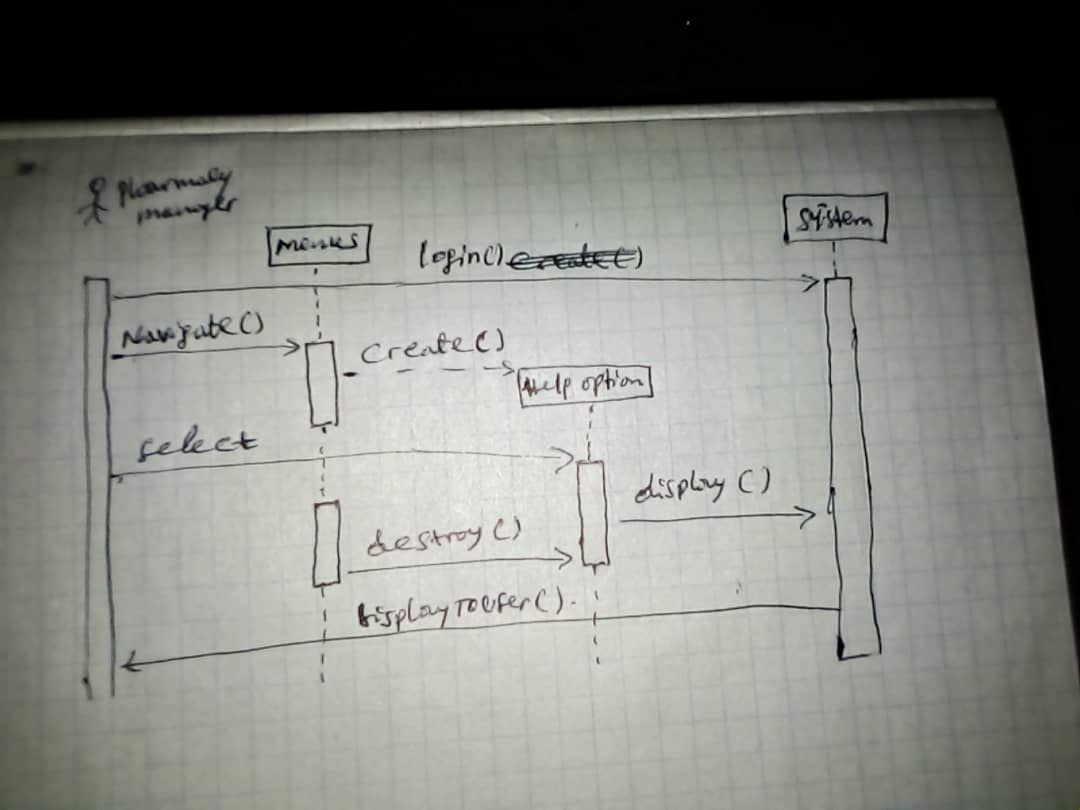 Pharmacy
manager
Menus
System
login() create()
Navigate()
Create()
Help option
select
display ()
destroy ()
DisplayToUser().